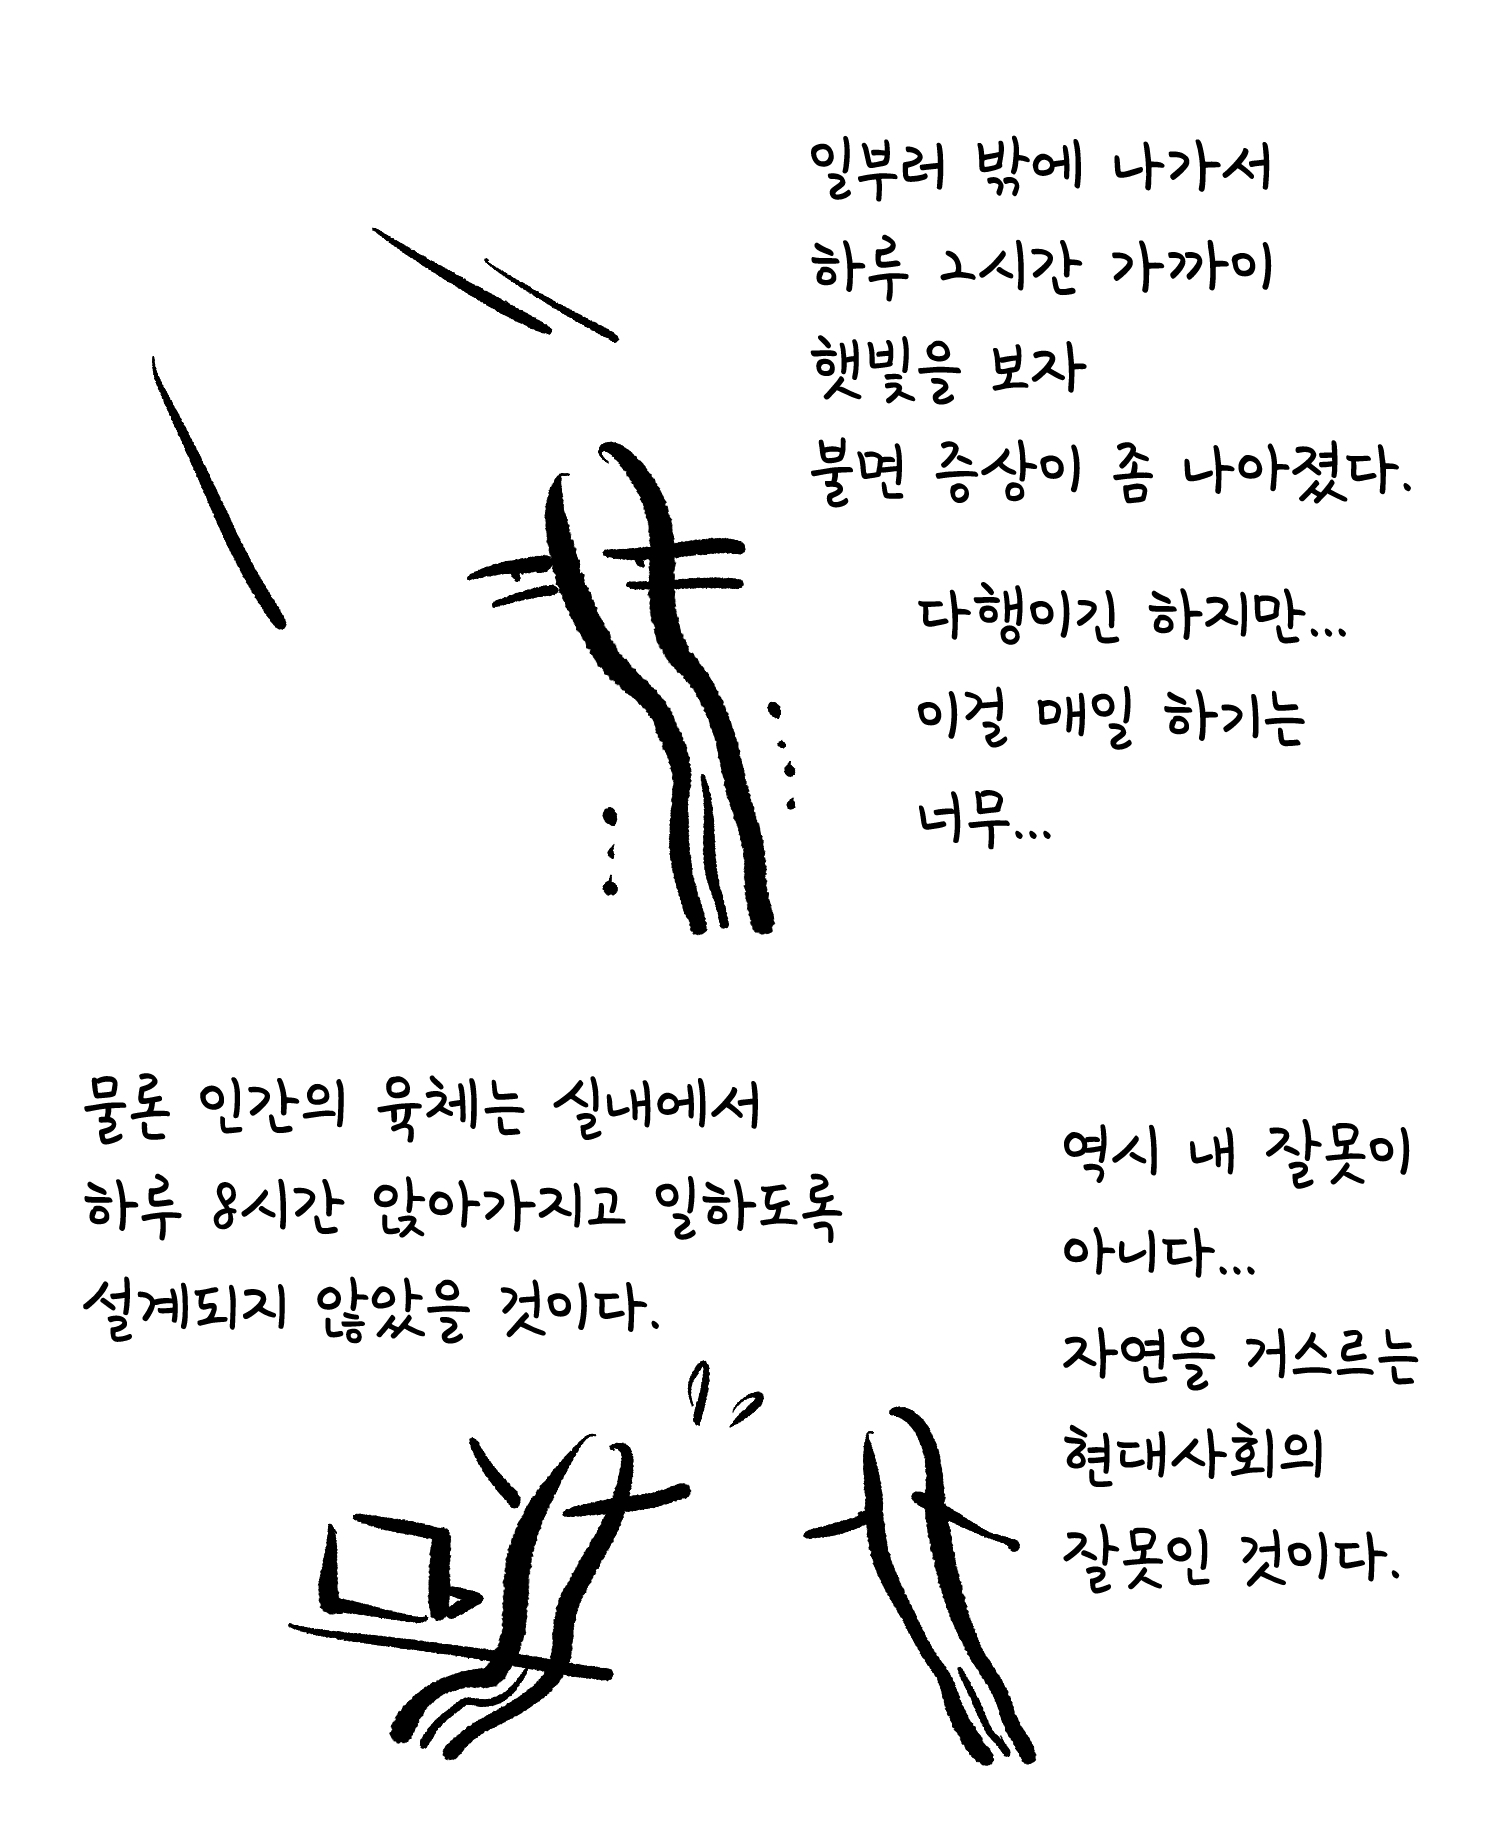 일부러 밖에 나가서
하루 2시간 가까이
햇빛을 보자
불면 증상이 좀 나아졌다.
다행이긴 하지만...
이걸 매일 하기는
너무...
물론 인간의 육체는 실내에서
하루 8시간 앉아가지고 일하도록
설계되지 않았을 것이다.
역시 내 잘못이
아니다...
자연을 거스르는
현대사회의
잘못인 것이다.